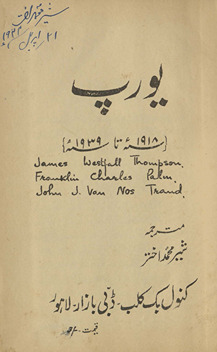 شیر محمد اختر
۲۱ اپریل ۱۹۴۲
یورپ
{۱۹۱۸ء تا ۱۹۳۹ء}
James Westfall Thompson.
Franklin Charles Palm.
John J. Van Nos Trand.
مترجمہ
شیر محمد اختر
کنول بک کلب۔ ڈبی بازار۔ لاہور
قیمت